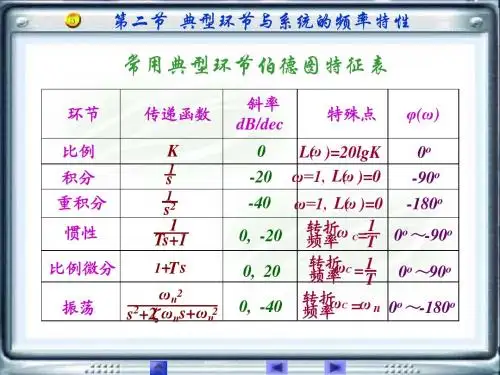 第二节 典型环节与系统的频率特性
常用典型环节伯德图特征表
环节 传递函数 斜率 dB/dec 特殊点 φ(ω)
比例 K 0 L(ω)=20lgK 0º
积分 1/s -20 ω=1, L(ω)=0 -90º
重积分 1/s² -40 ω=1, L(ω)=0 -180º
惯性 1/Ts+1 0, -20 转折频率 ωC=1/T 0º～-90º
比例微分 1+Ts 0, 20 转折频率 ωC=1/T 0º～90º
振荡 ωn²/s²+2ζωns+ωn² 0, -40 转折频率 ωC=ωn 0º～-180º